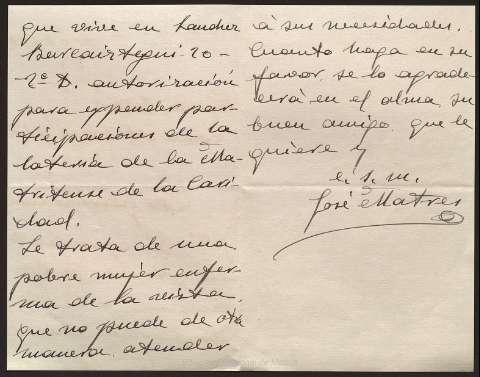 que vive en Sanchez
Barcaiztegui 20-
2º D. autorización
para expender par-
ticipaciones de la
lotería de la Ma-
tritense de la Cari-
dad.
Se trata de una
pobre mujer enfer-
ma de la vista,
que no puede de otra
manera atender
á sus necesidades.
Cuanto haga en su
favor se lo agrade-
cerá en el alma su
buen amigo que le
quiere y
e. s. m.
José Matres